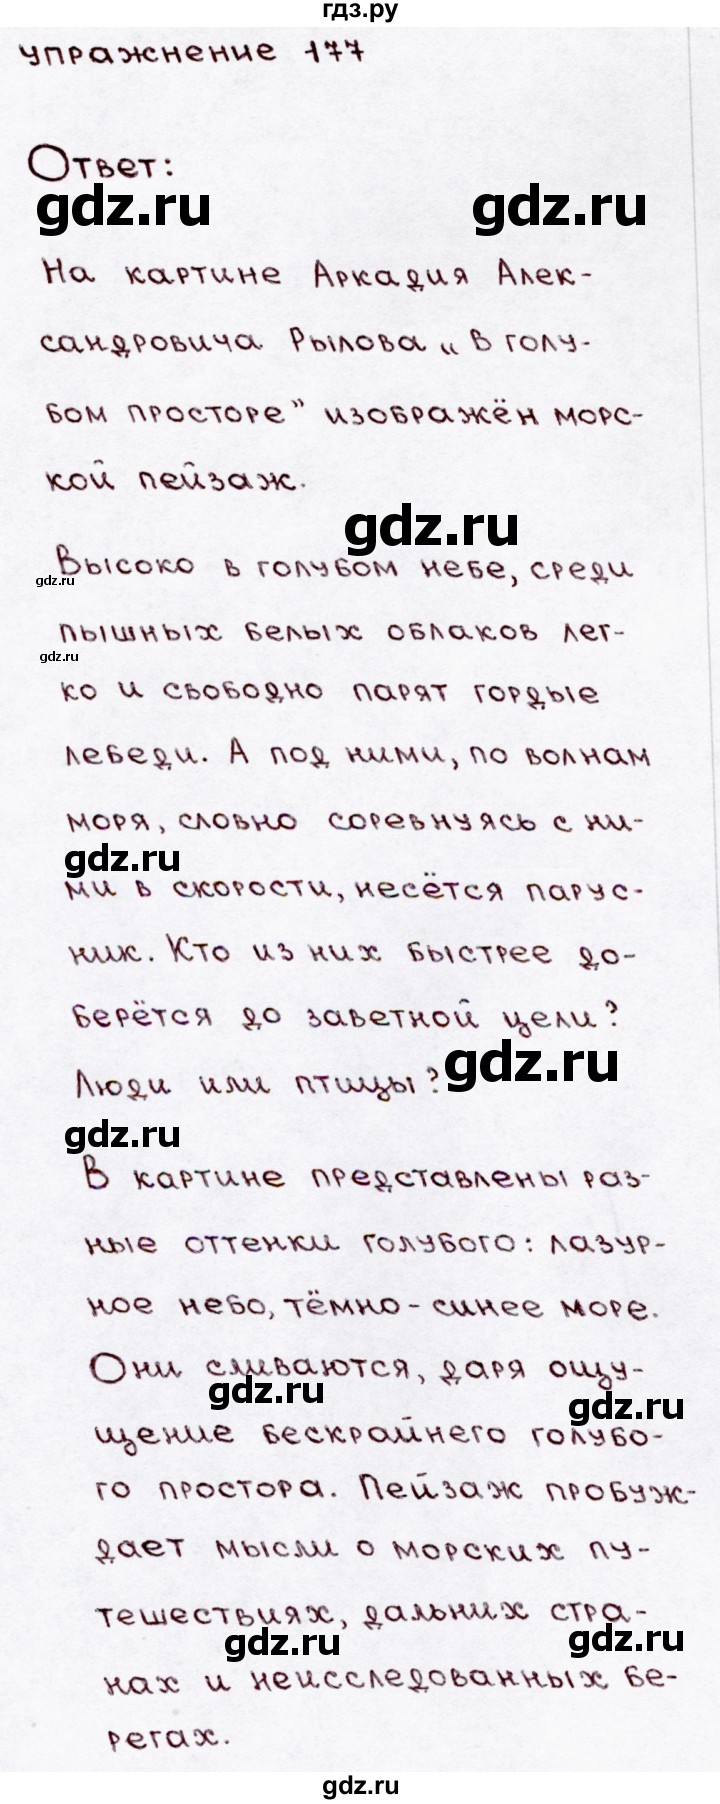 гдз.ру
упражнение 177
Ответ:
gdz.ru gdz.ru
На картине Аркадия Алек-
сандровича Рылова „В голу-
бом просторе” изображён морс-
кой пейзаж.
gdz.ru
Высоко в голубом небе, среди
gdz.ru
пышных белых облаков лег-
gdz.ru
ко и свободно парят гордые
лебеди. А под ними, по волнам
моря, словно соревнуясь с ни-
gdz.ru
ми в скорости, несётся парус-
ник. Кто из них быстрее до-
берётся до заветной цели?
gdz.ru
Люди или птицы?
gdz.ru
В картине представлены раз-
ные оттенки голубого: лазур-
ное небо, тёмно-синее море.
Они сливаются, даря ощу-
gdz.ru gdz.ru
щение бескрайнего голубо-
го простора. Пейзаж пробуж-
дает мысли о морских пу-
тешествиях, дальних стра-
gdz.ru gdz.ru
нах и неисследованных бе-
регах.
gdz.ru